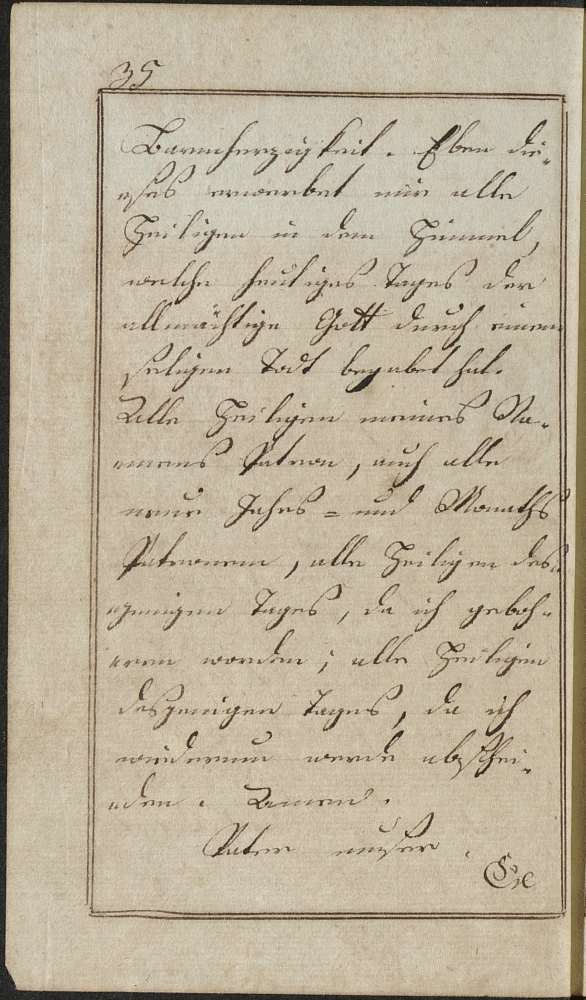 35
Barmherzigkeit. Eben die-
„ses erwerbet mir alle
Heiligen in dem Himmel,
welche heutiges Tages der
allmächtige Gott durch einen
seligen Todt begabet hat.
Alle Heiligen meines Na-
„mens Patron, auch alle
neue Jahrs= und Monaths
Patronen, alle Heiligen des-
„jenigen Tages, da ich geboh-
„ren worden; alle Heiligen
desjenigen Tages, da ich
wiederum werde abschei-
„den. Amen.
Vater unser.